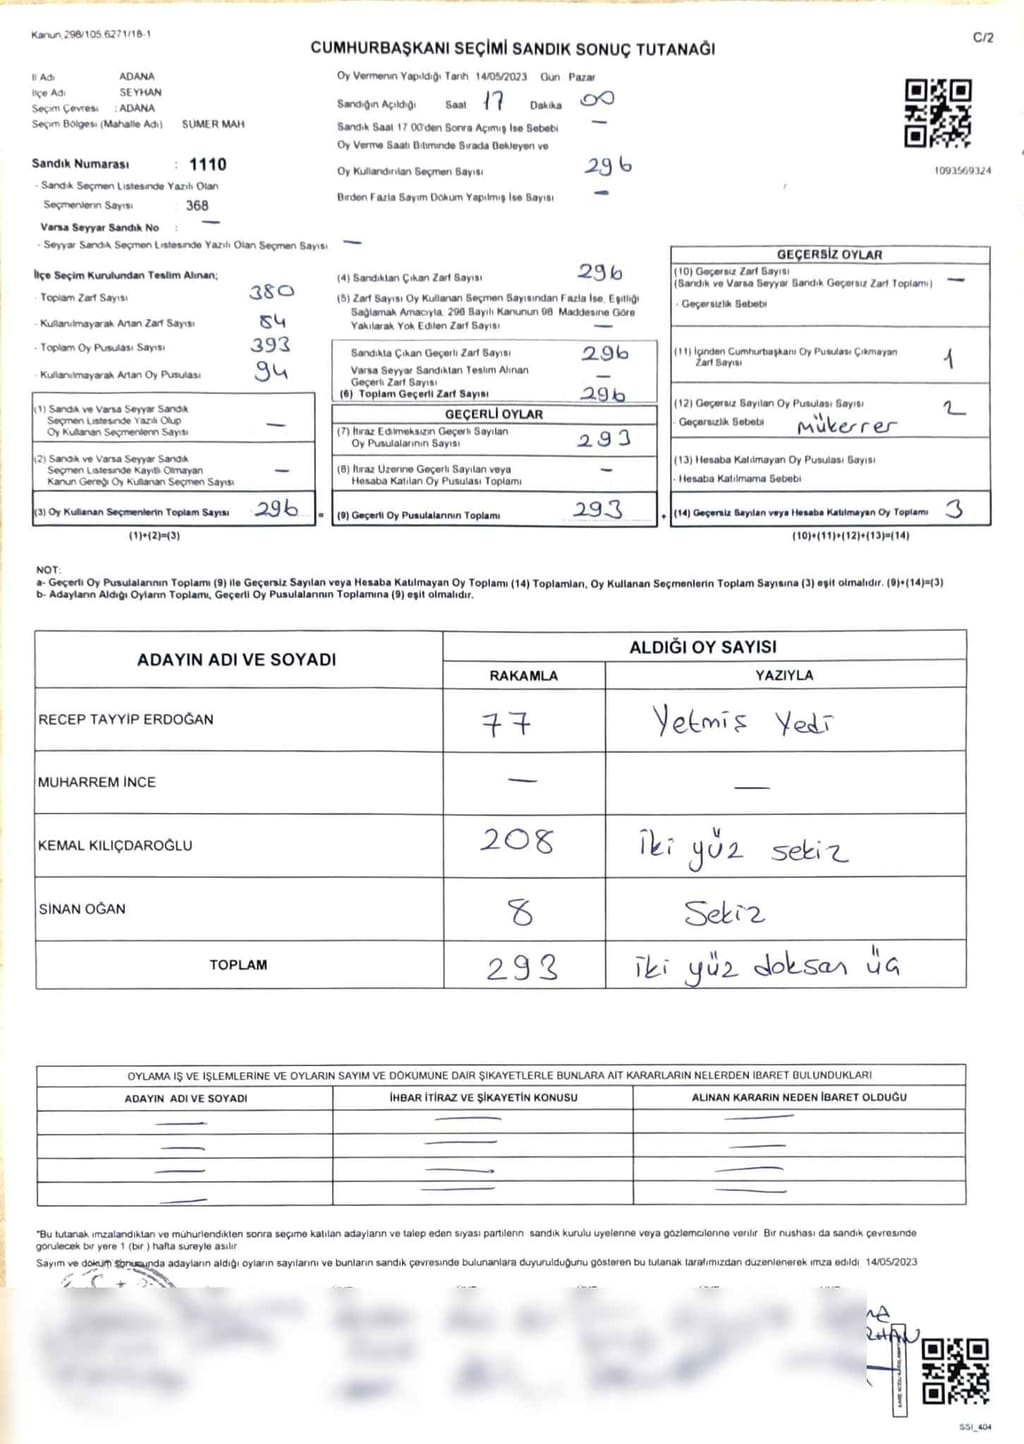 Kanun.298/105.6271/18-1
C/2
CUMHURBAŞKANI SEÇİMİ SANDIK SONUÇ TUTANAĞI
İl Adı ADANA
İlçe Adı SEYHAN
Seçim Çevresi : ADANA
Seçim Bölgesi (Mahalle Adı) SUMER MAH
Sandık Numarası : 1110
- Sandık Seçmen Listesinde Yazılı Olan
Seçmenlerin Sayısı 368
Varsa Seyyar Sandık No : —
- Seyyar Sandık Seçmen Listesinde Yazılı Olan Seçmen Sayısı —
Oy Vermenin Yapıldığı Tarih 14/05/2023 Gün Pazar
Sandığın Açıldığı Saat 17 Dakika 00
Sandık Saat 17 00'den Sonra Açımış İse Sebebi —
Oy Verme Saati Bitiminde Sırada Bekleyen ve
Oy Kullandırılan Seçmen Sayısı 296
Birden Fazla Sayım Döküm Yapılmış İse Sayısı —
1093569324
İlçe Seçim Kurulundan Teslim Alınan;
- Toplam Zarf Sayısı 380
- Kullanılmayarak Artan Zarf Sayısı 84
- Toplam Oy Pusulası Sayısı 393
- Kullanılmayarak Artan Oy Pusulası 94
(1) Sandık ve Varsa Seyyar Sandık
Seçmen Listesinde Yazılı Olup
Oy Kullanan Seçmenlerin Sayısı —
(2) Sandık ve Varsa Seyyar Sandık
Seçmen Listesinde Kayıtlı Olmayan
Kanun Gereği Oy Kullanan Seçmen Sayısı —
(3) Oy Kullanan Seçmenlerin Toplam Sayısı 296 =
(1)+(2)=(3)
(4) Sandıktan Çıkan Zarf Sayısı 296
(5) Zarf Sayısı Oy Kullanan Seçmen Sayısından Fazla İse, Eşitliği
Sağlamak Amacıyla, 298 Sayılı Kanunun 98 Maddesine Göre
Yakılarak Yok Edilen Zarf Sayısı —
Sandıkta Çıkan Geçerli Zarf Sayısı 296
Varsa Seyyar Sandıktan Teslim Alınan
Geçerli Zarf Sayısı —
(6) Toplam Geçerli Zarf Sayısı 296
GEÇERLİ OYLAR
(7) İtiraz Edilmeksizin Geçerli Sayılan
Oy Pusulalarının Sayısı 293
(8) İtiraz Üzerine Geçerli Sayılan veya
Hesaba Katılan Oy Pusulası Toplamı —
(9) Geçerli Oy Pusulalarının Toplamı 293 +
GEÇERSİZ OYLAR
(10) Geçersiz Zarf Sayısı
(Sandık ve Varsa Seyyar Sandık Geçersiz Zarf Toplamı) —
- Geçersizlik Sebebi
(11) İçinden Cumhurbaşkanı Oy Pusulası Çıkmayan
Zarf Sayısı 1
(12) Geçersiz Sayılan Oy Pusulası Sayısı 2
- Geçersizlik Sebebi Mükerrer
(13) Hesaba Katılmayan Oy Pusulası Sayısı
- Hesaba Katılmama Sebebi
(14) Geçersiz Sayılan veya Hesaba Katılmayan Oy Toplamı 3
(10)+(11)+(12)+(13)=(14)
NOT:
a- Geçerli Oy Pusulalarının Toplamı (9) ile Geçersiz Sayılan veya Hesaba Katılmayan Oy Toplamı (14) Toplamları, Oy Kullanan Seçmenlerin Toplam Sayısına (3) eşit olmalıdır. (9)+(14)=(3)
b- Adayların Aldığı Oyların Toplamı, Geçerli Oy Pusulalarının Toplamına (9) eşit olmalıdır.
ADAYIN ADI VE SOYADI
ALDIĞI OY SAYISI
RAKAMLA YAZIYLA
RECEP TAYYİP ERDOĞAN 77 Yetmiş Yedi
MUHARREM İNCE — —
KEMAL KILIÇDAROĞLU 208 İki yüz sekiz
SİNAN OĞAN 8 Sekiz
TOPLAM 293 İki yüz doksan üç
OYLAMA İŞ VE İŞLEMLERİNE VE OYLARIN SAYIM VE DÖKÜMÜNE DAİR ŞİKAYETLERLE BUNLARA AİT KARARLARIN NELERDEN İBARET BULUNDUKLARI
ADAYIN ADI VE SOYADI İHBAR İTİRAZ VE ŞİKAYETİN KONUSU ALINAN KARARIN NEDEN İBARET OLDUĞU
— — —
— — —
— — —
— — —
*Bu tutanak imzalandıktan ve mühürlendikten sonra seçime katılan adayların ve talep eden siyasi partilerin sandık kurulu üyelerine veya gözlemcilerine verilir Bir nüshası da sandık çevresinde
görülecek bir yere 1 (bir ) hafta süreyle asılır
Sayım ve döküm sonucunda adayların aldığı oyların sayılarını ve bunların sandık çevresinde bulunanlara duyurulduğunu gösteren bu tutanak tarafımızdan düzenlenerek imza edildi 14/05/2023
SSİ_404